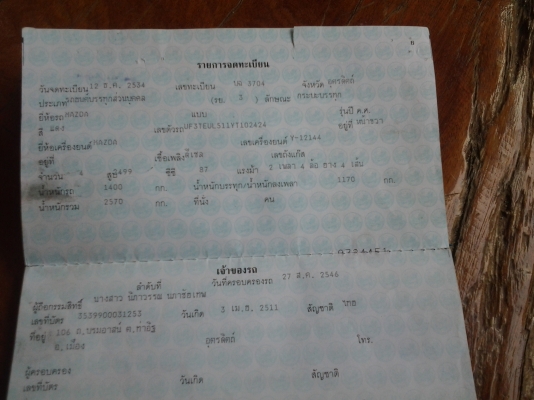 รายการจดทะเบียน
วันจดทะเบียน 12 ธ.ค. 2534 เลขทะเบียน 3704 จังหวัด อุตรดิตถ์
ประเภท รถยนต์บรรทุกส่วนบุคคล (รย. 3 ) ลักษณะ กระบะบรรทุก
ยี่ห้อรถ MAZDA แบบ รุ่นปี ค.ศ.
สี แดง เลขตัวรถ อยู่ที่ หน้าขวา
ยี่ห้อเครื่องยนต์ MAZDA เลขเครื่องยนต์ อยู่ที่
เชื้อเพลิง ดีเซล เลขถังแก๊ส
จำนวน 4 สูบ ซีซี 87 แรงม้า 2 เพลา 4 ล้อ ยาง 4 เส้น
น้ำหนักรถ 1400 กก. น้ำหนักบรรทุก/น้ำหนักลงเพลา 1170 กก.
น้ำหนักรวม 2570 กก. ที่นั่ง คน
เจ้าของรถ
ลำดับที่ วันที่ครอบครองรถ 27 ส.ค. 2546
ผู้ถือกรรมสิทธิ์ นางสาว นิภาวรรณ
เลขที่บัตร วันเกิด 3 เม.ย. 2511 สัญชาติ ไทย
ที่อยู่ 106 ถ.บรมอาสน์ ต.ท่าอิฐ
อ.เมือง อุตรดิตถ์ โทร.
ผู้ครอบครอง
เลขที่บัตร วันเกิด สัญชาติ